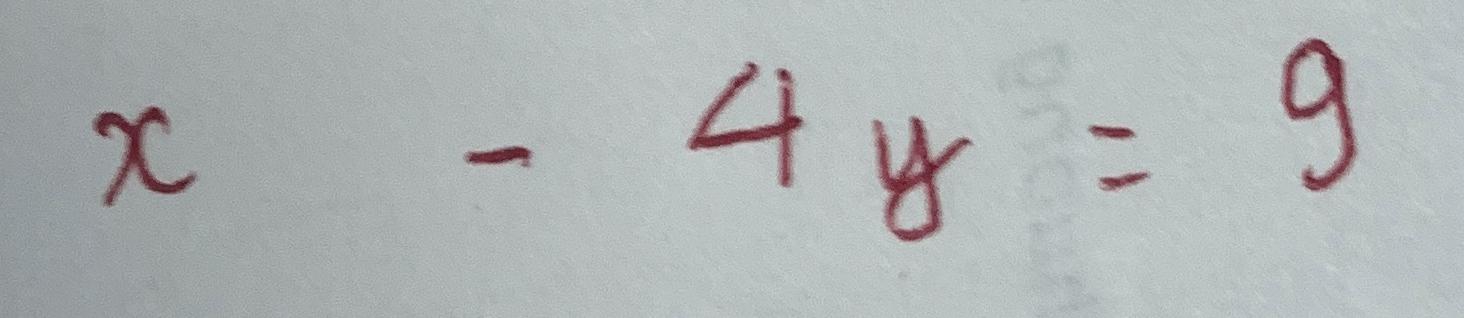 x - 4y = 9